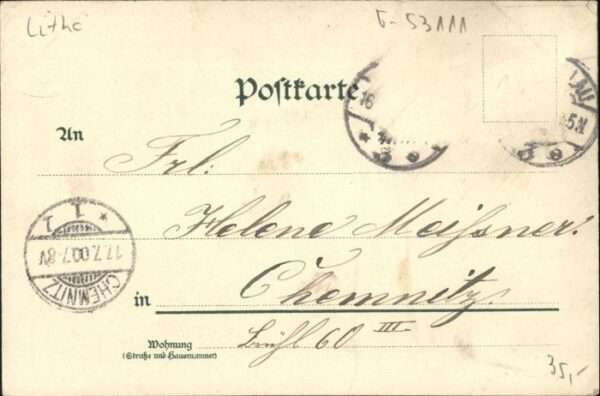 Litho
Postkarte
An
Frl:
Helene Meißner.
in Chemnitz.
Wohnung
(Straße und Hausnummer)
Brühl 60 III
CHEMNITZ
17.7.00.7-8V
1
35,-